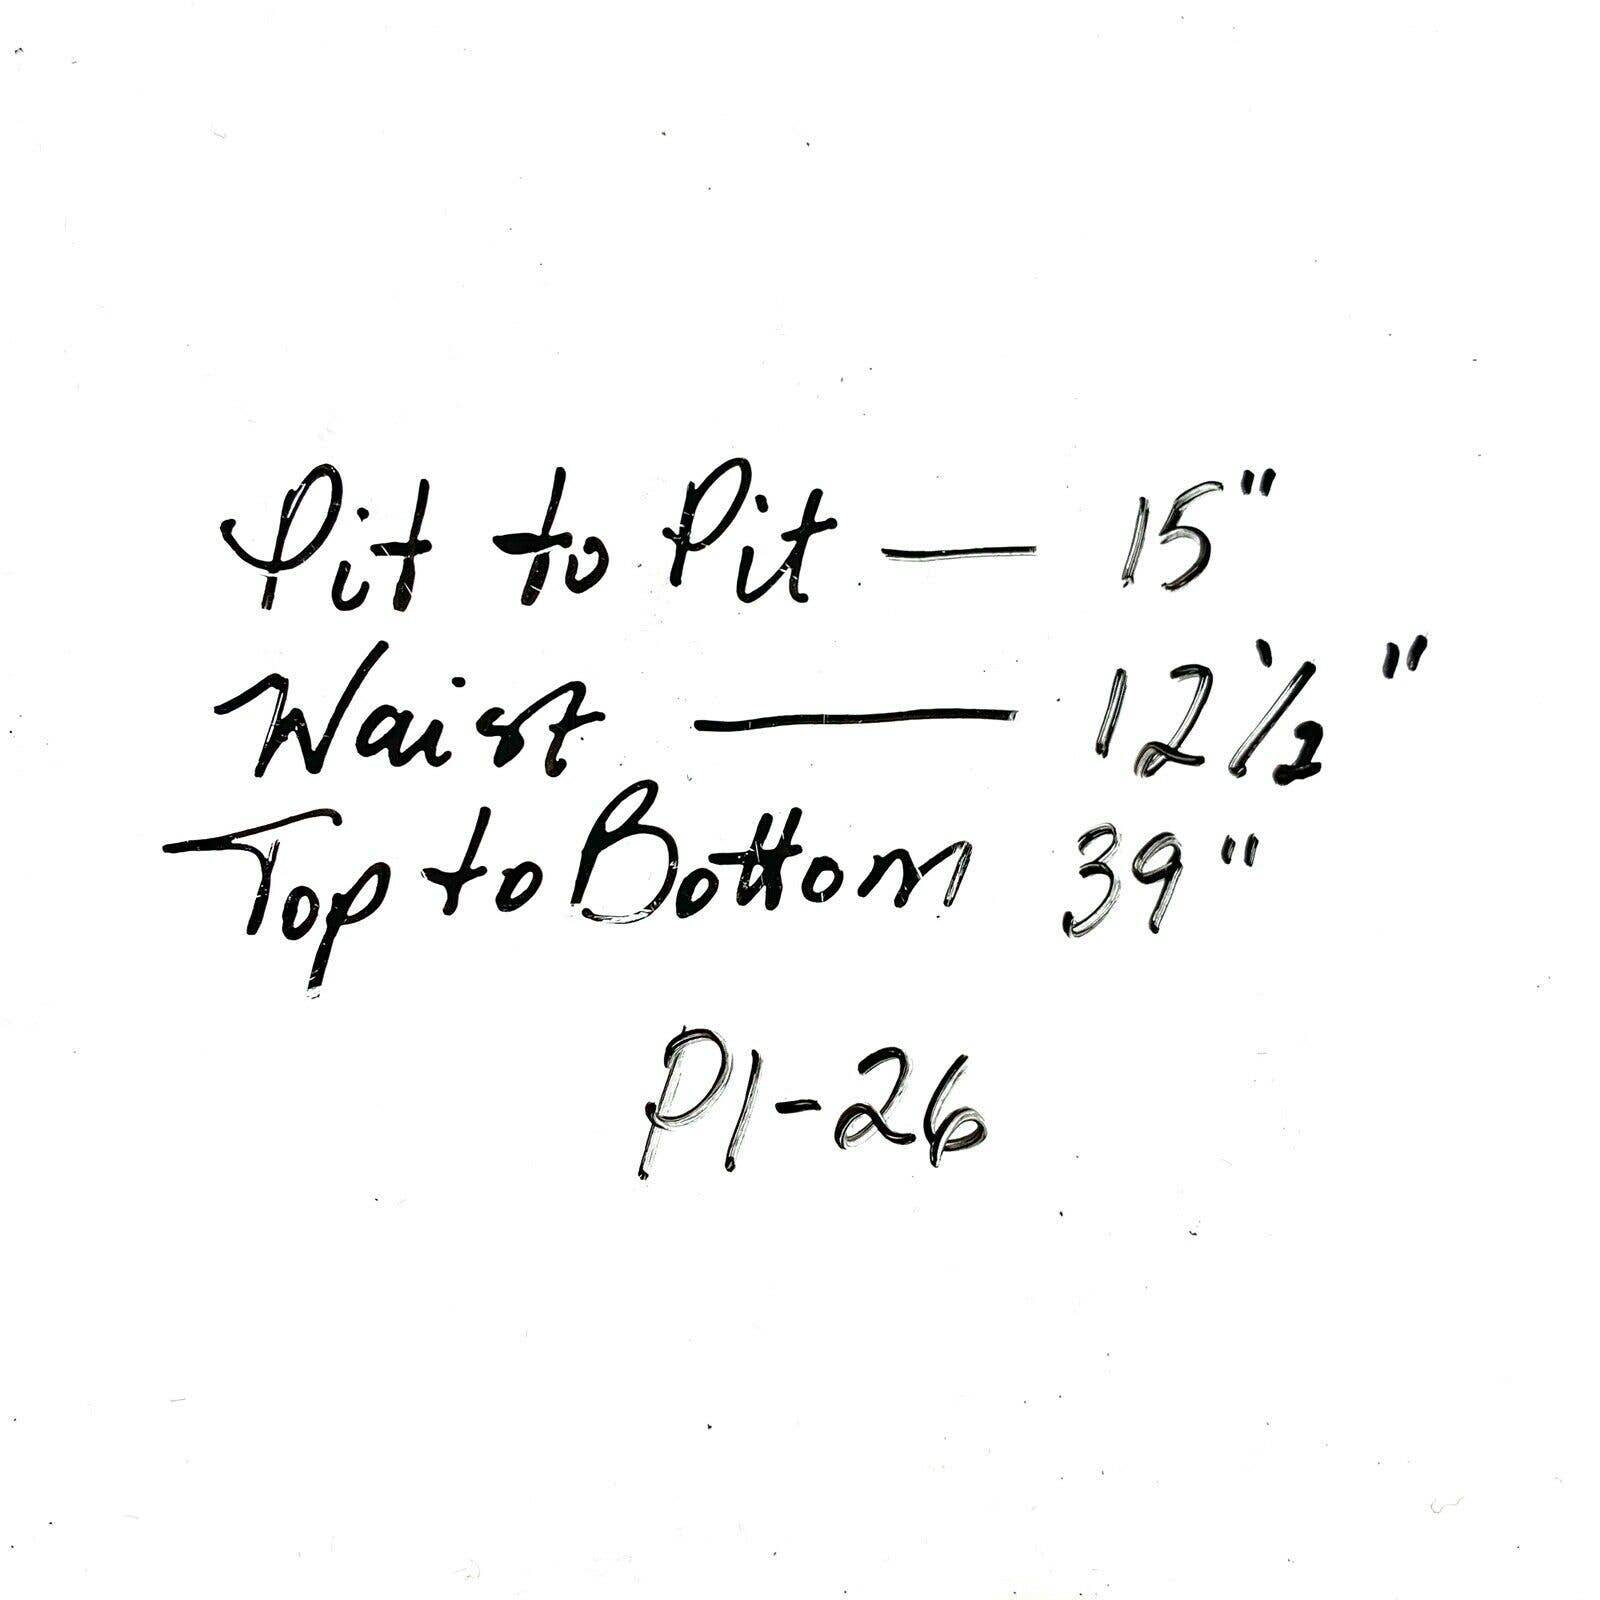 Pit to Pit — 15"
Waist — 12 1/2"
Top to Bottom 39"
P1-26